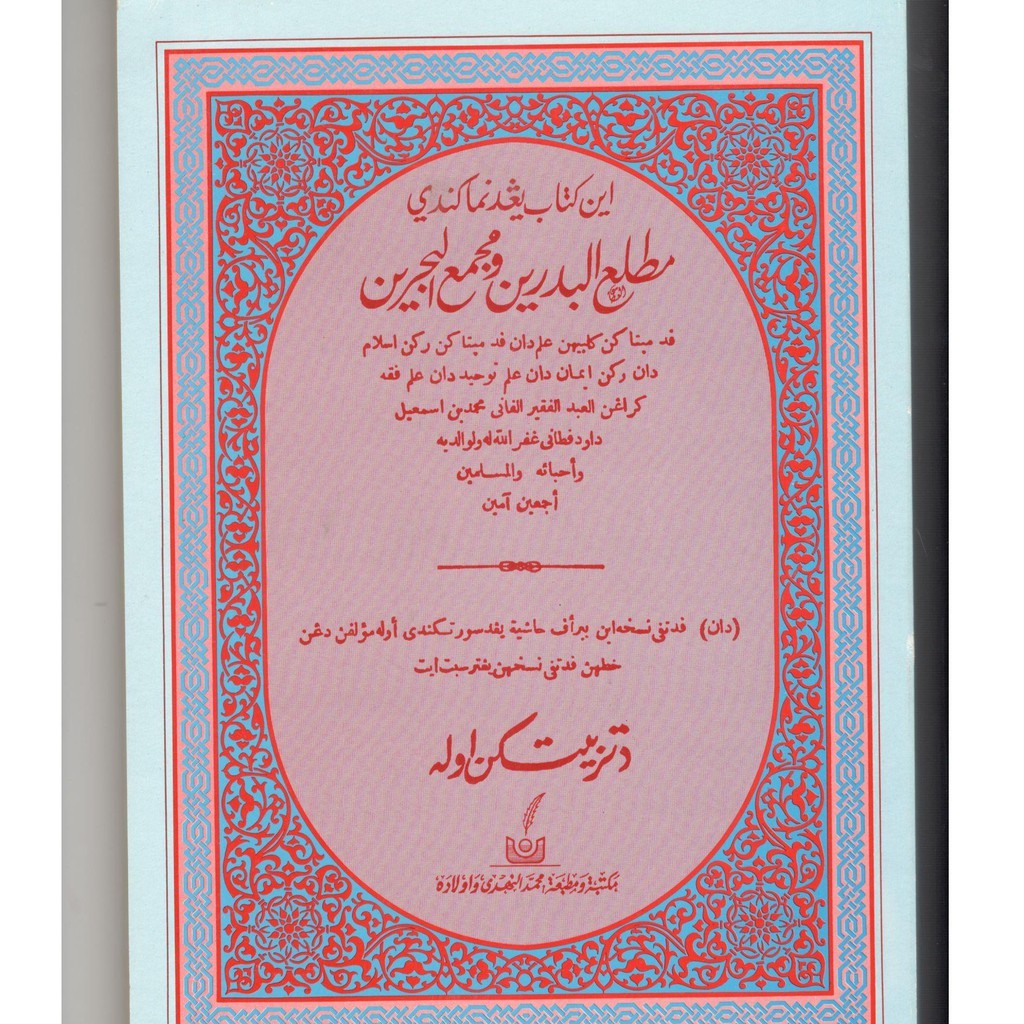 اين كتاب يڠد نماكندي
مطلع البدرين ومجمع البحرين
قد مپتاكن كلبيهن علم دان قد مپتاكن ركن اسلام
دان ركن ايمان دان علم توحيد دان علم فقه
كراڠن العبد الفقير الفانى محمد بن اسمعيل
داود فطانى غفر الله له ولوالديه
وأحبائه والمسلمين
أجمعين آمين
(دان) قد تفى نسخه اين ببرأف حاشية يڠد سورتسكندى أوله مؤلفن دڠن
خطهن قد تفى نسخهن يڠترسبت ايت
دتربيتكن اوله
مكتبة ومطبعة محمد النهدى واولاده